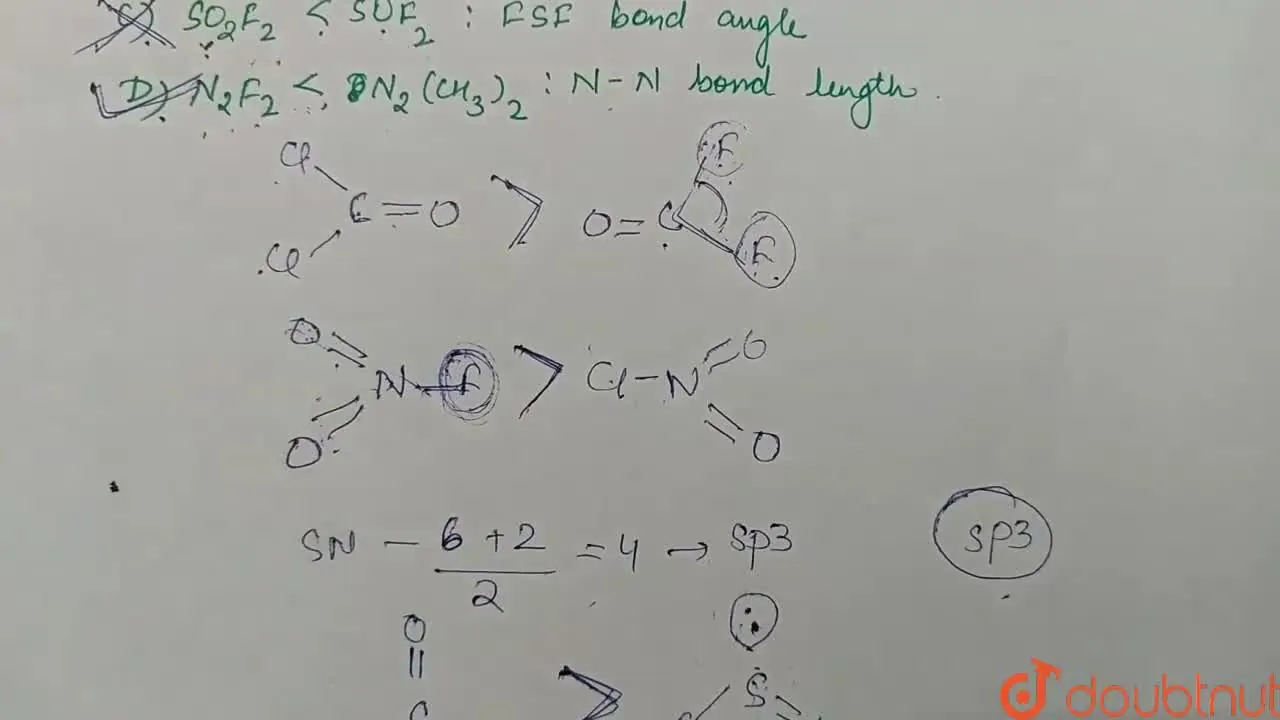 C) SO2F2 < SOF2 : FSF bond angle
D) N2F2 < N2(CH3)2 : N-N bond length.
Cl
F
C=O > O=C
Cl
F
O
O
N-F > Cl-N
O
O
SN - 6+2/2 = 4 → sp3
sp3
O
> S
doubtnut